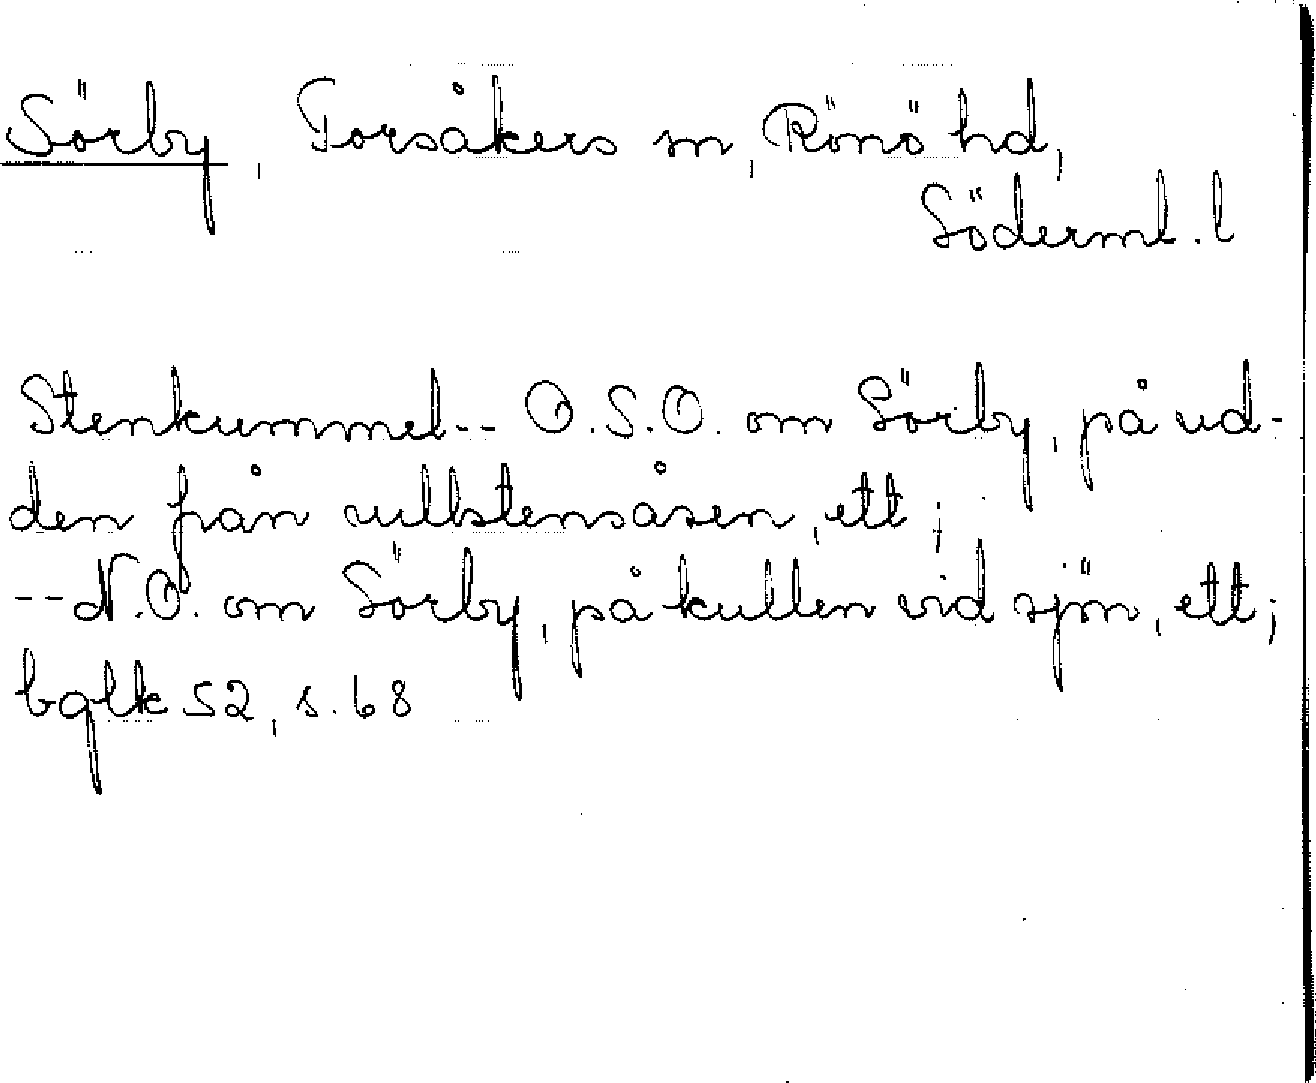 Sörby, Torsåkers sn, Rönö hd,
Söderml. l
Stenkummel -- O.S.O. om Sörby, på ud-
den från rullstensåsen, ett;
-- N.O. om Sörby, på kullen vid sjön, ett;
bglk 52, s. 68